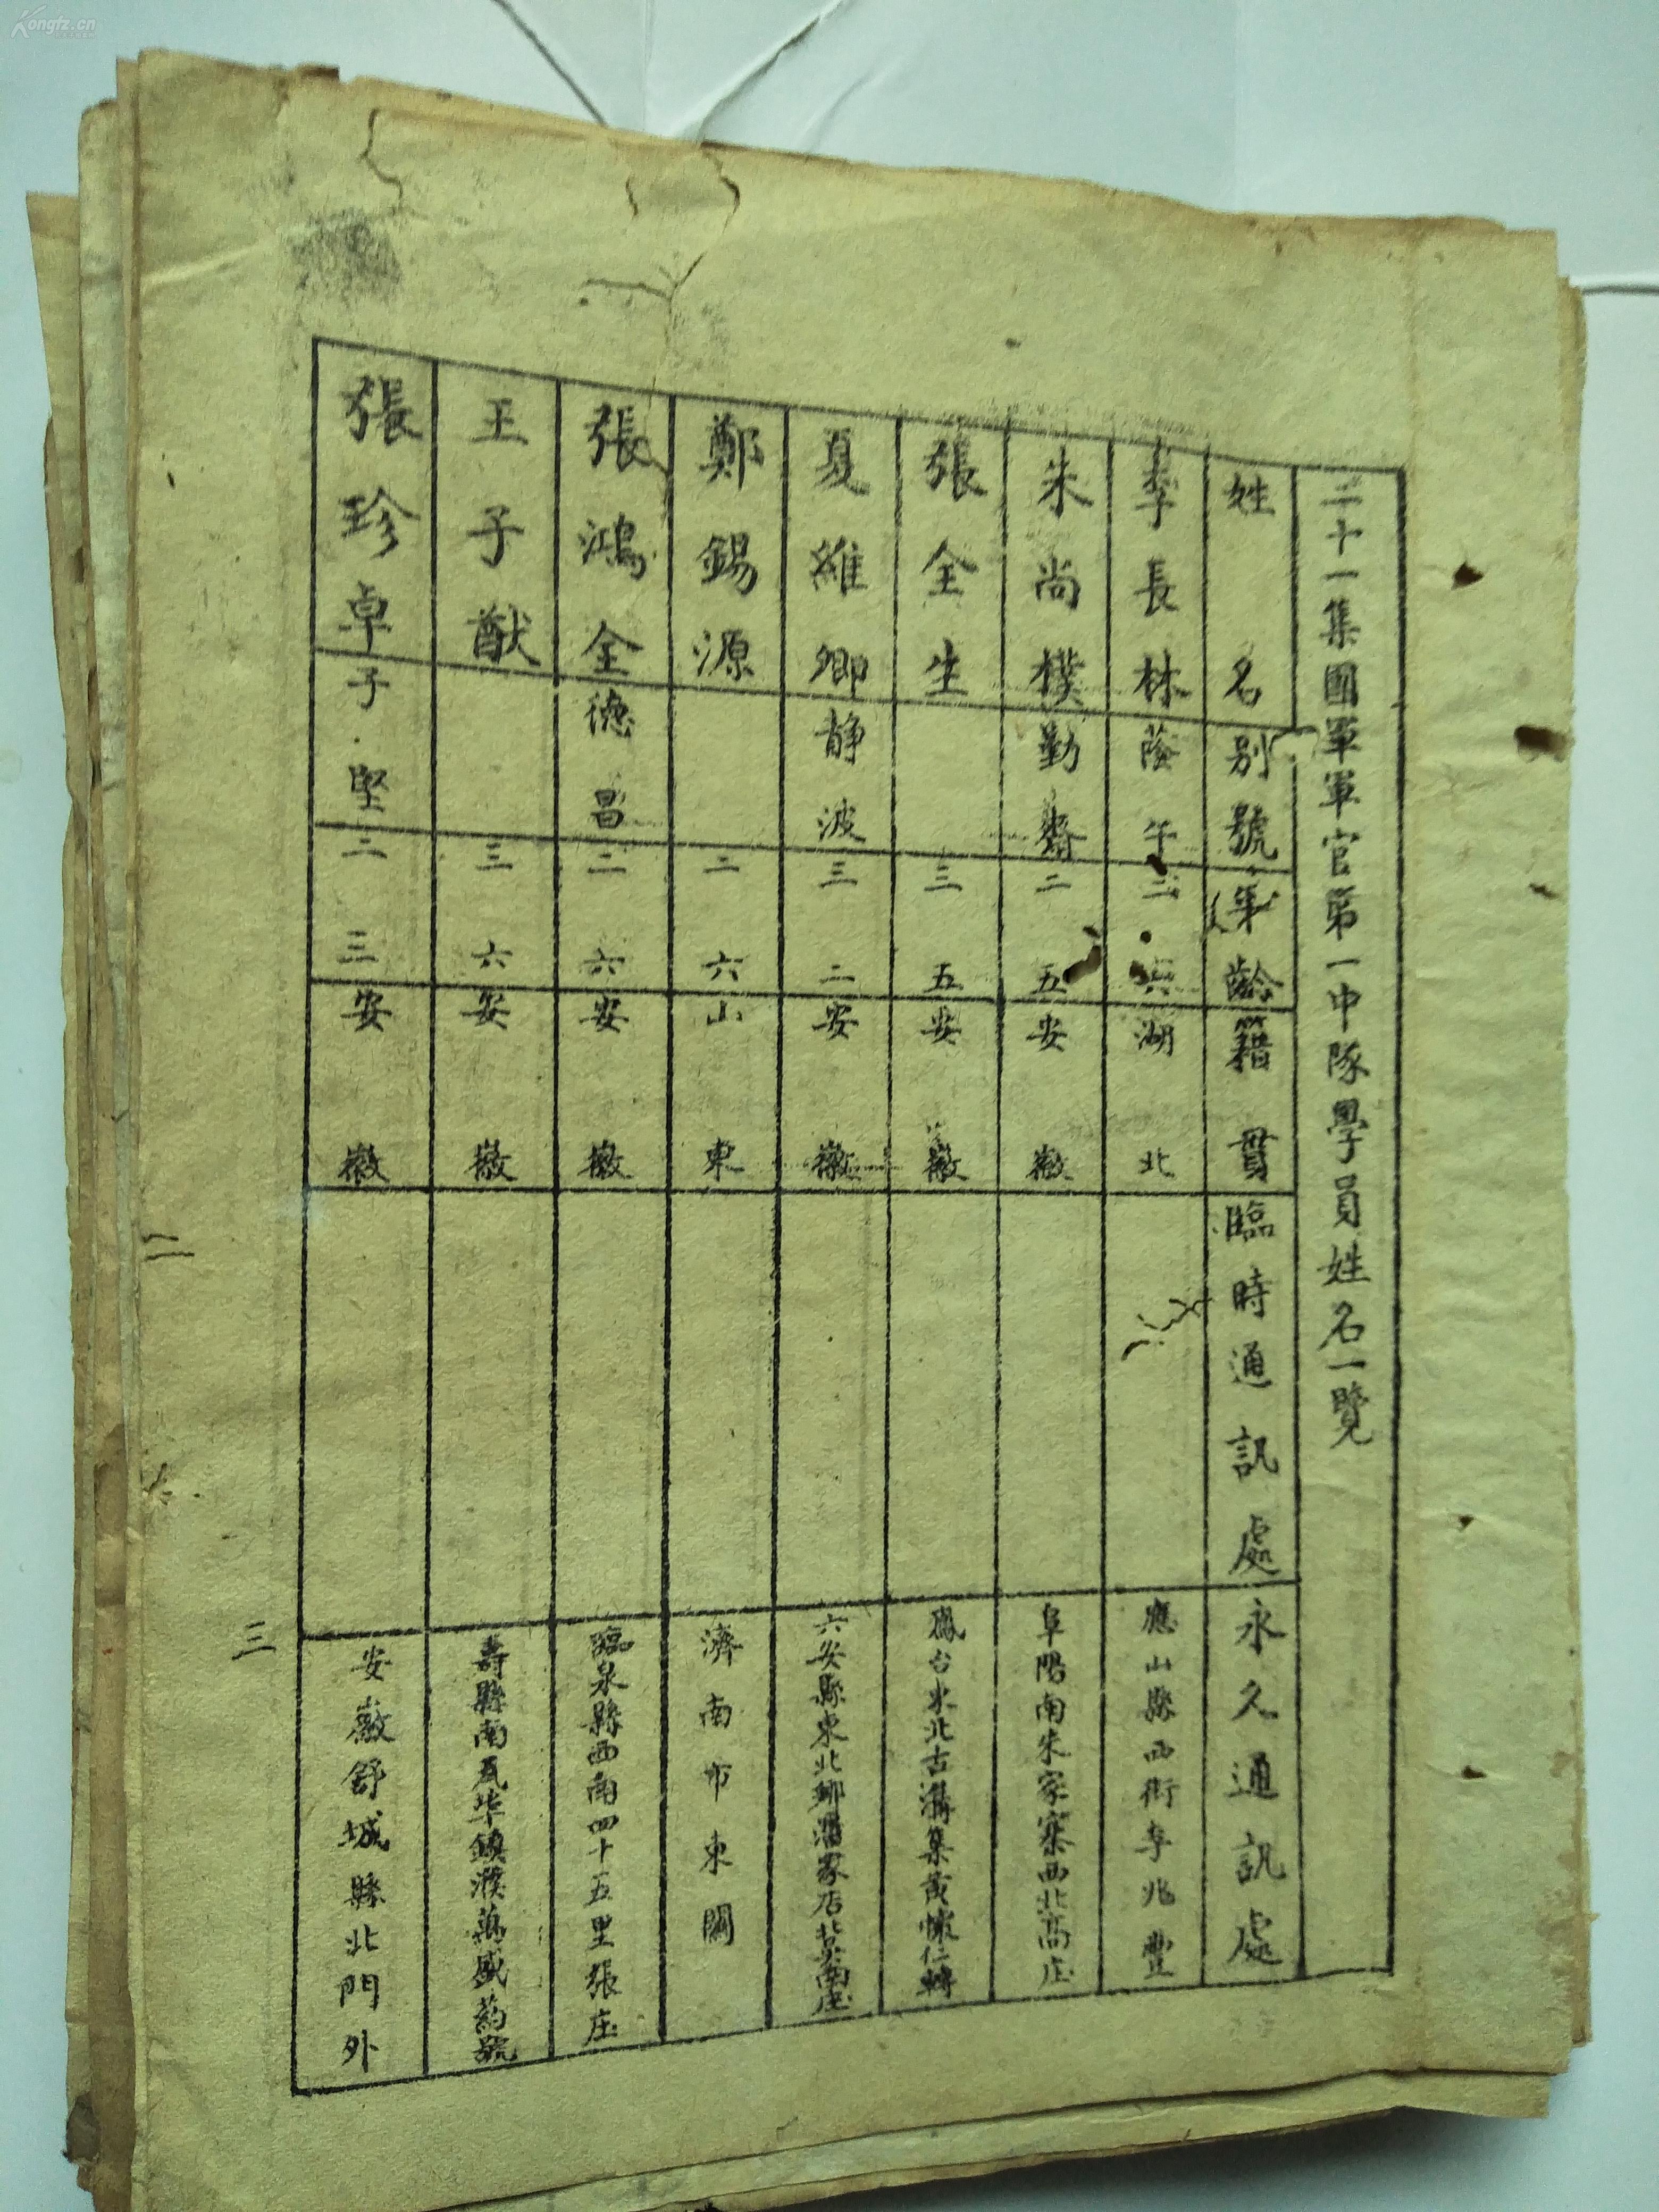 二十一集團軍軍官第一中隊學員姓名一覽
姓名 別號 年齡 籍貫 臨時通訊處 永久通訊處
李長林 蔭午 三六 湖北 應山縣西街李兆豐
朱尚樸 勤齋 二五 安徽 阜陽南朱家寨西北高庄
張全生 三五 安徽 鳳台東北古溝集黃懷仁轉
夏維卿 静波 三二 安徽 六安縣東北鄉潘家店北莫南庄
鄭錫源 二六 山東 濟南市東關
張鴻全 德昌 二六 安徽 臨泉縣西南四十五里張庄
王子猷 三六 安徽 壽縣南瓦埠鎮濮萬盛葯號
張珍卓 子堅 二三 安徽 安徽舒城縣北門外
三
二
Kongfz.cn